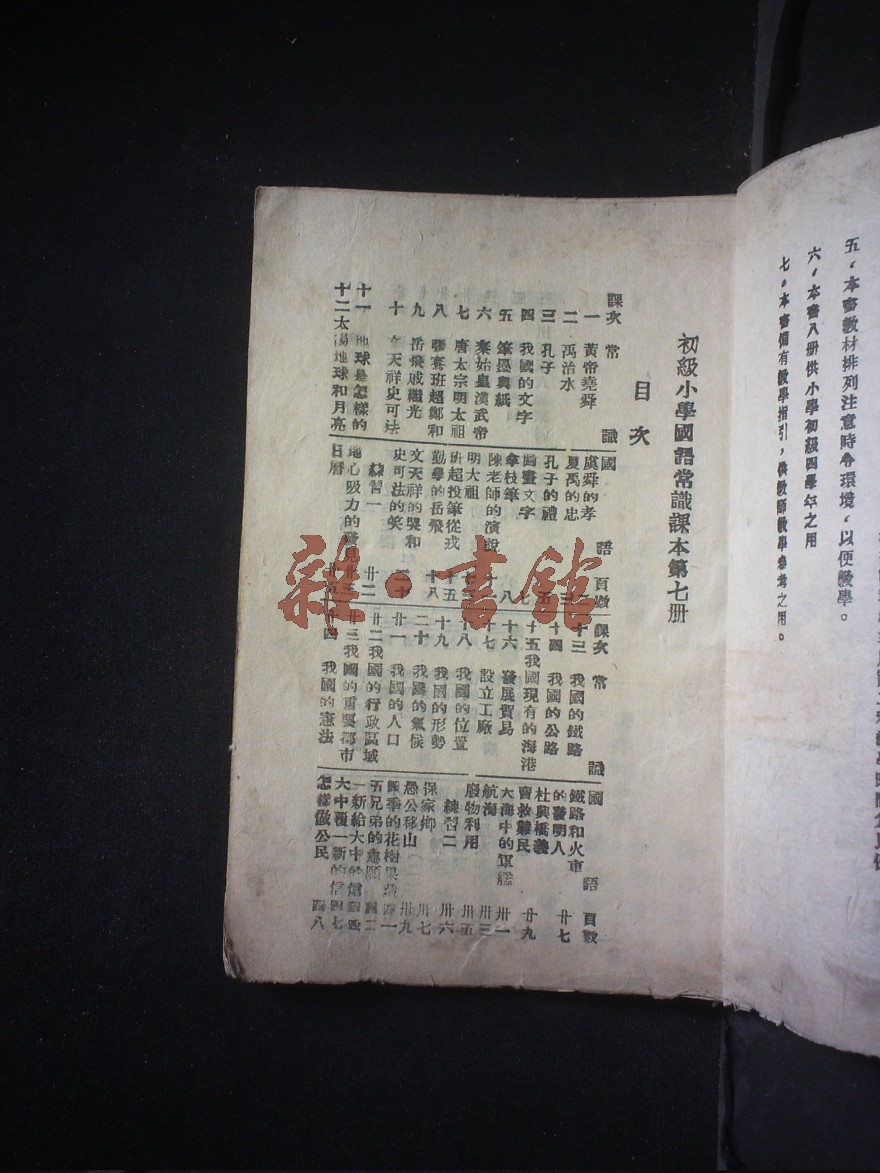 五、本書教材排列注意時令環境，以便教學。
六、本書八册供小學初級四學年之用
七、本書備有教學指引，供教師教學參考之用。
初級小學國語常識課本第七册
目次
課次 常識 國語 頁數
一 黃帝堯舜 虞舜的孝
二 禹治水 夏禹的忠
三 孔子 孔子的禮
四 我國的文字 圖畫文字
五 筆墨與紙 拿枝筆 八
六 秦始皇漢武帝 陳老師的演說
七 唐太宗明太祖 明太祖
八 張騫班超鄭和 班超投筆從戎 十五
九 岳飛戚繼光 勤學的岳飛 十八
十 文天祥史可法 文天祥的哭和史可法的笑 二十
練習一 卅二
十一 地球是怎樣的 地心吸力的發見
十二 太陽地球和月亮 日曆
課次 常識 國語 頁數
十三 我國的鐵路 鐵路和火車的發明人 廿七
十四 我國的公路 杜興橋義
十五 我國現有的海港 救難民 廿九
十六 發展貿易 大海中的軍艦 卅一
航海 卅三
十七 設立工廠 廢物利用 卅五
練習二 卅六
十八 我國的位置 保家鄉 卅七
十九 我國的形勢 愚公移山 卅九
二十 我國的氣候 四季的花樹果 四一
廿一 我國的人口 五兄弟的志願 四二
廿二 我國的行政區域 一新給大中的信
廿三 我國的重要都市 大中覆一新的信 四七
廿四 我國的憲法 怎樣做公民 四八
雜·書館